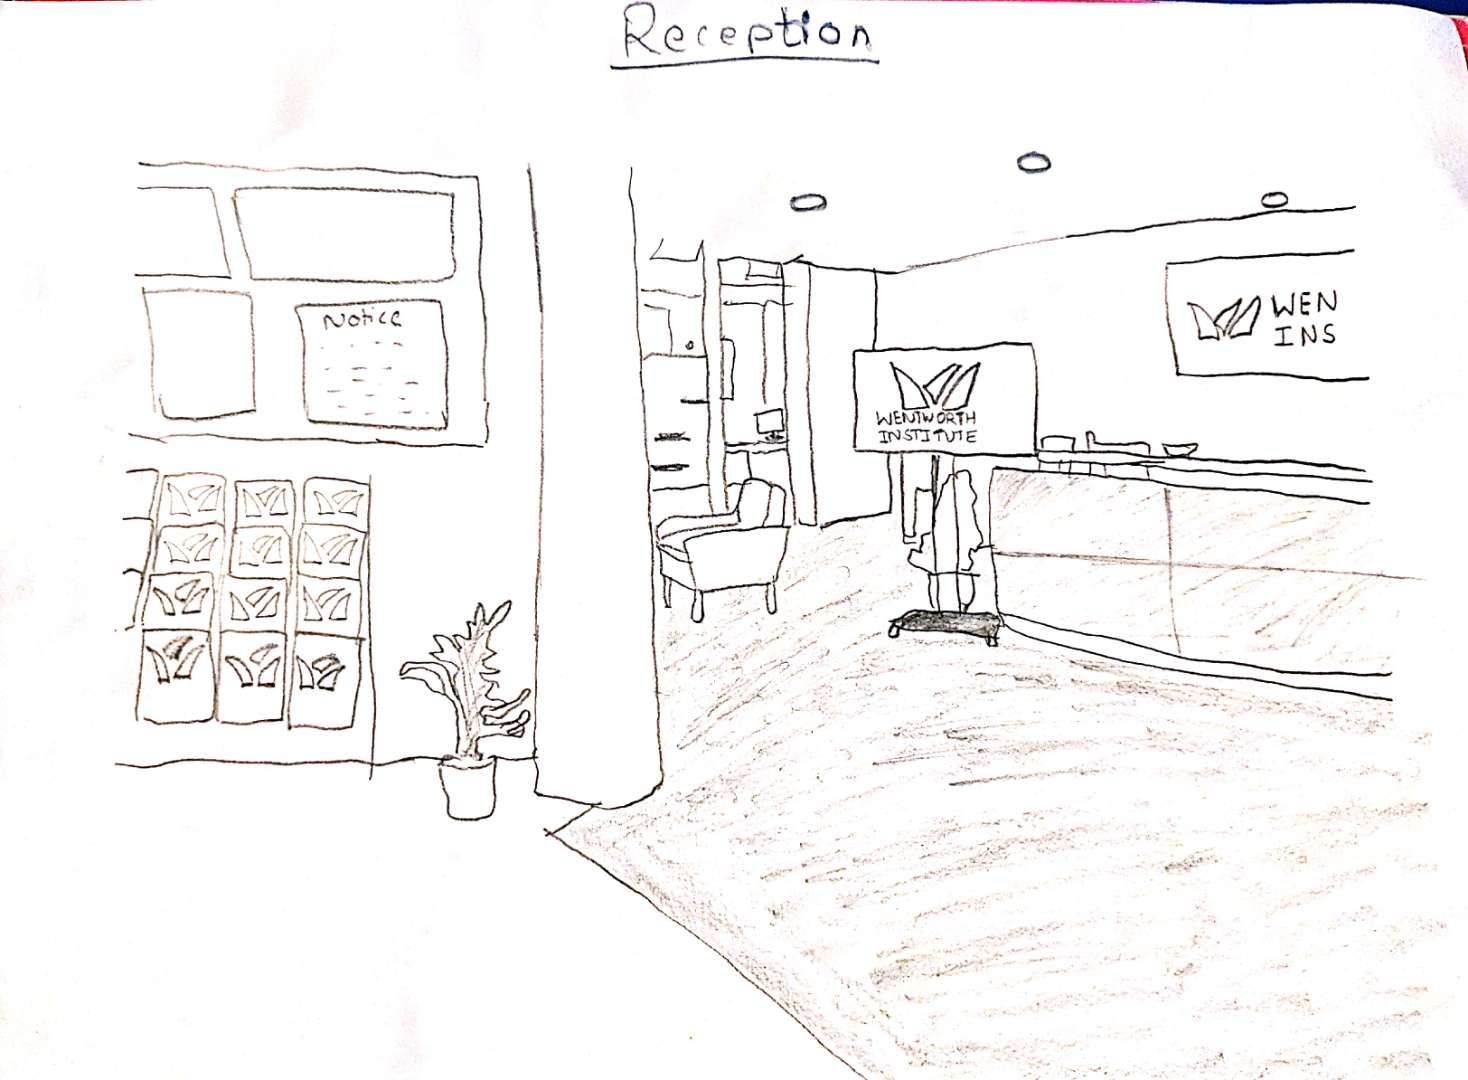 Reception
Notice
WENTWORTH
INSTITUTE
WEN
INS